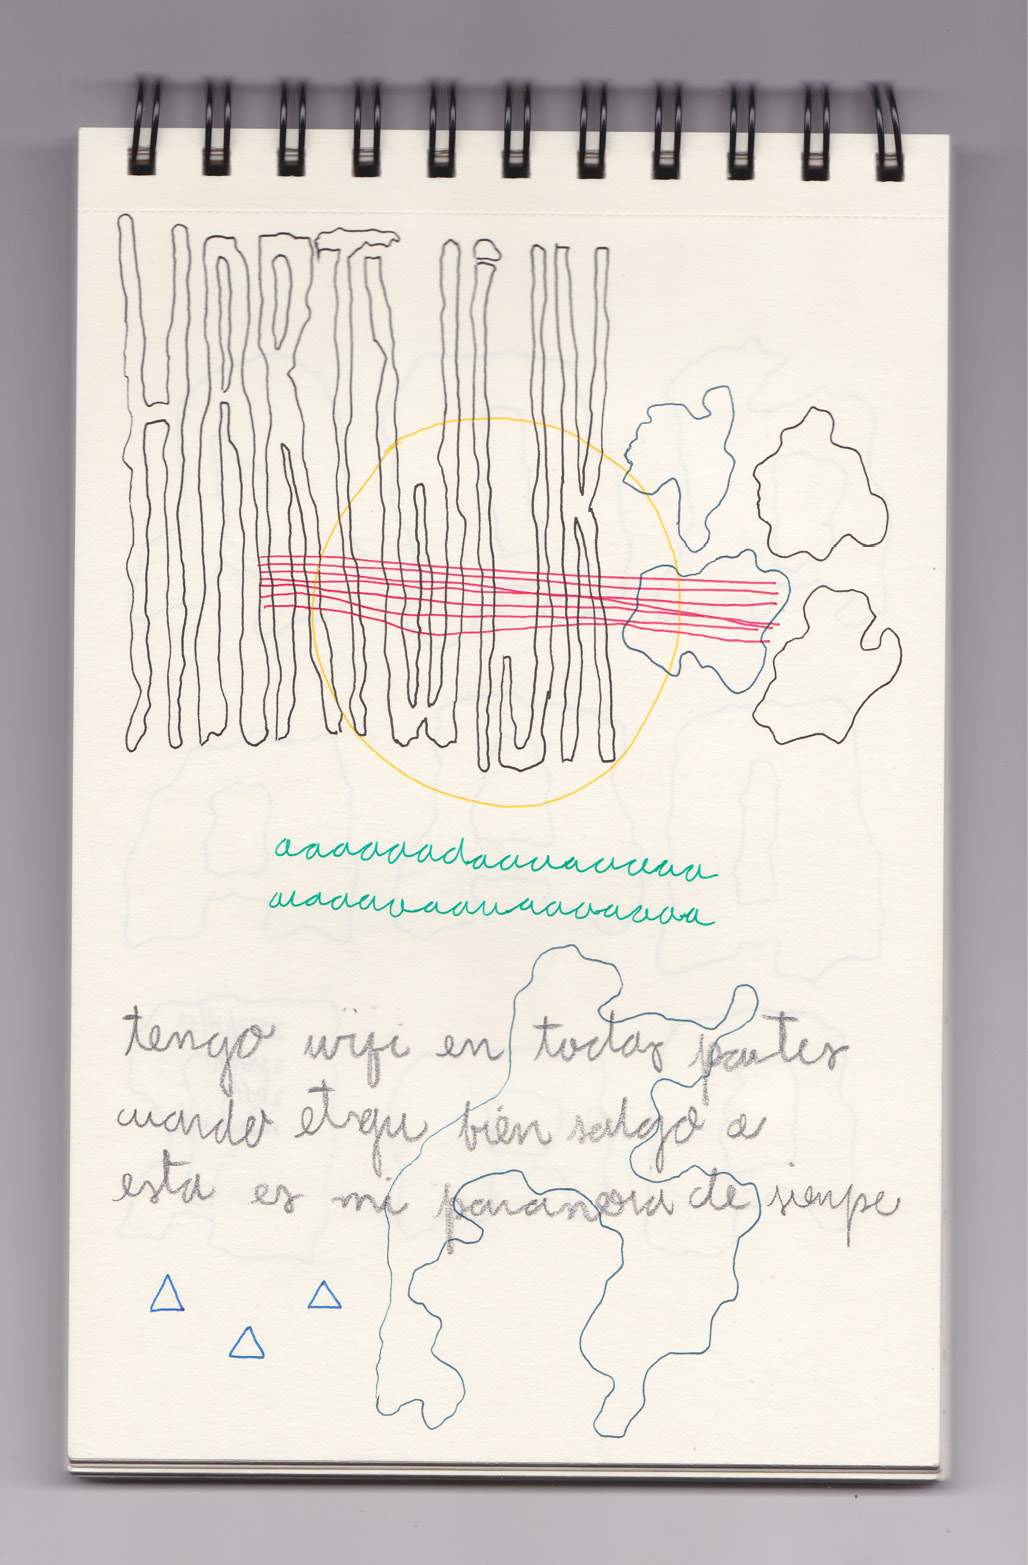 HARTWiJK
aaaaaaadaauaaaeaa
aeaaaaaaauaaaaaaaa
tengo wifi en todas partes
cuando bien salgo a
esta es mi paranoia de sienpe